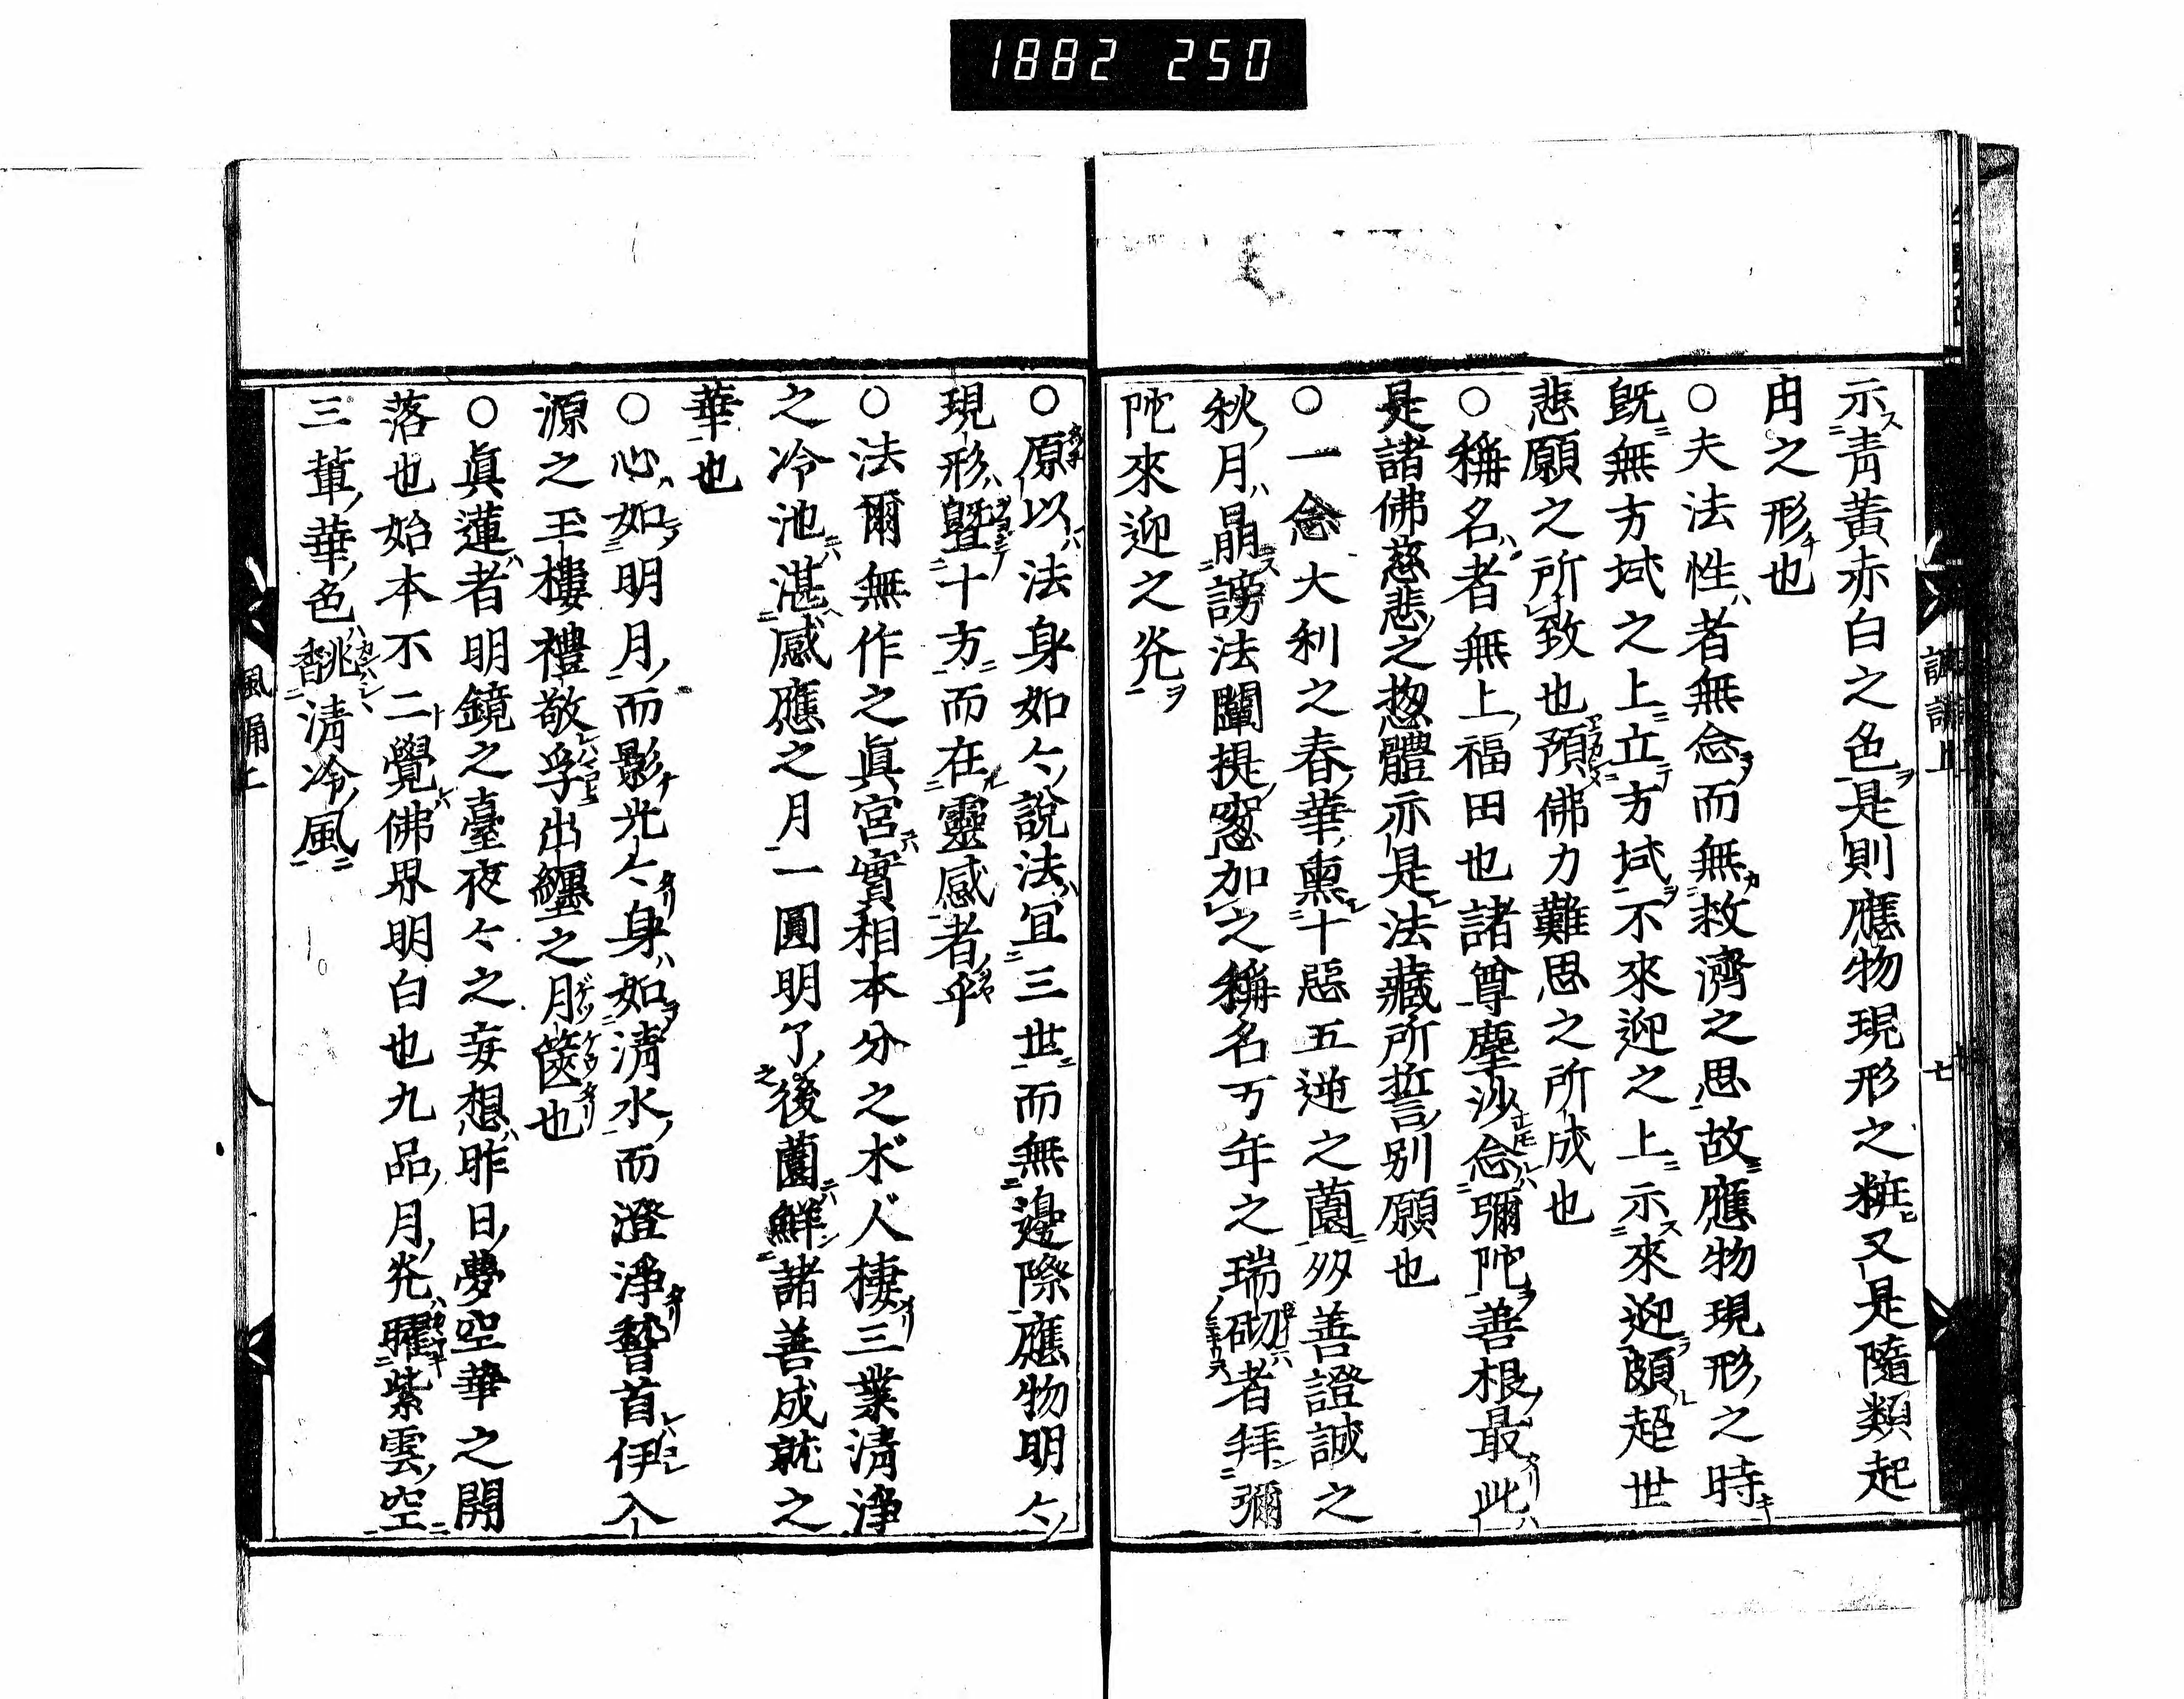 1882 250
示青黃赤白之色是則應物現形之粧又是隨類起
由之形也
○夫法性者無念而無救濟之思故應物現形之時
既無方域之上立方域不來迎之上示來迎頗超世
悲願之所致也預佛力難思之所成也
○稱名者無上福田也諸尊塵沙念彌陀善根最此
是諸佛慈悲之惣體亦是法藏所誓別願也
○一念大利之春華熏十惡五逆之薗夛善證誠之
秋月朗謗法闡提窓加之稱名万年之瑞砌者拜彌
陀來迎之光
○原以法身如々說法宜三世而無邊際應物明々
現形曁十方而在靈感者乎
○法爾無作之眞宮實相本分之木人棲三業清淨
之冷池湛感應之月一圓明了後薗鮮諸善成就之
華也
○心如明月而影光々身如清水而澄淨誓首伊入
源之玉樓禮敬孚出纏之月篋也
○眞蓮者明鏡之臺夜々之妄想昨日夢空華之開
落也始本不二覺佛界明白也九品月光曜紫雲空
三輩華色馡清冷風